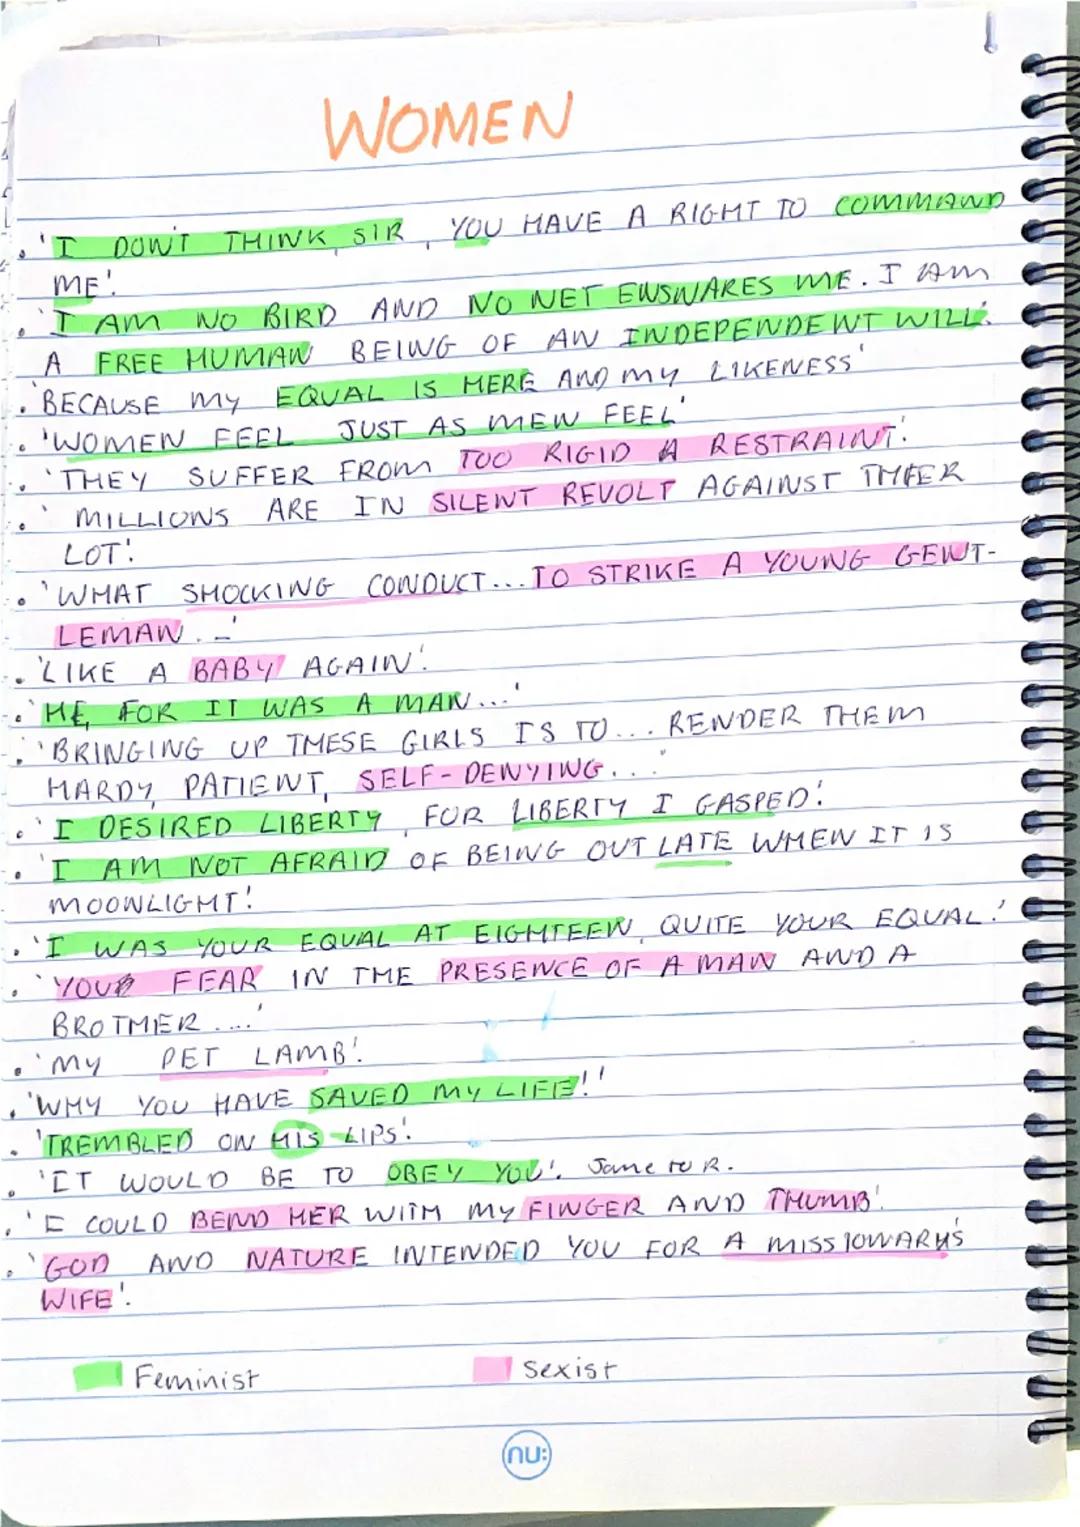 WOMEN
. 'I DON'T THINK, SIR, YOU HAVE A RIGHT TO COMMAND
ME'.
. 'I AM NO BIRD AND NO NET ENSNARES ME. I AM
A FREE HUMAN BEING OF AN INDEPENDENT WILL'.
. 'BECAUSE MY EQUAL IS HERE AND MY LIKENESS'
. 'WOMEN FEEL JUST AS MEN FEEL'
. 'THEY SUFFER FROM TOO RIGID A RESTRAINT'.
. 'MILLIONS ARE IN SILENT REVOLT AGAINST THEER
LOT'.
. 'WHAT SHOCKING CONDUCT... TO STRIKE A YOUNG GENT-
LEMAN...'
. 'LIKE A BABY AGAIN'.
. 'HE, FOR IT WAS A MAN...'
. 'BRINGING UP THESE GIRLS IS TO... RENDER THEM
HARDY, PATIENT, SELF-DENYING...'
. 'I DESIRED LIBERTY, FOR LIBERTY I GASPED'.
. 'I AM NOT AFRAID OF BEING OUT LATE WHEN IT IS
MOONLIGHT'.
. 'I WAS YOUR EQUAL AT EIGHTEEN, QUITE YOUR EQUAL.'
. 'YOUR FEAR IN THE PRESENCE OF A MAN AND A
BROTHER....'
. 'MY PET LAMB'.
. 'WHY YOU HAVE SAVED MY LIFE!'
. 'TREMBLED ON HIS LIPS'.
. 'IT WOULD BE TO OBEY YOU'. Jane to R.
. 'I COULD BEND HER WITH MY FINGER AND THUMB'.
. 'GOD AND NATURE INTENDED YOU FOR A MISSIONARY'S
WIFE'.
Feminist Sexist
nu: